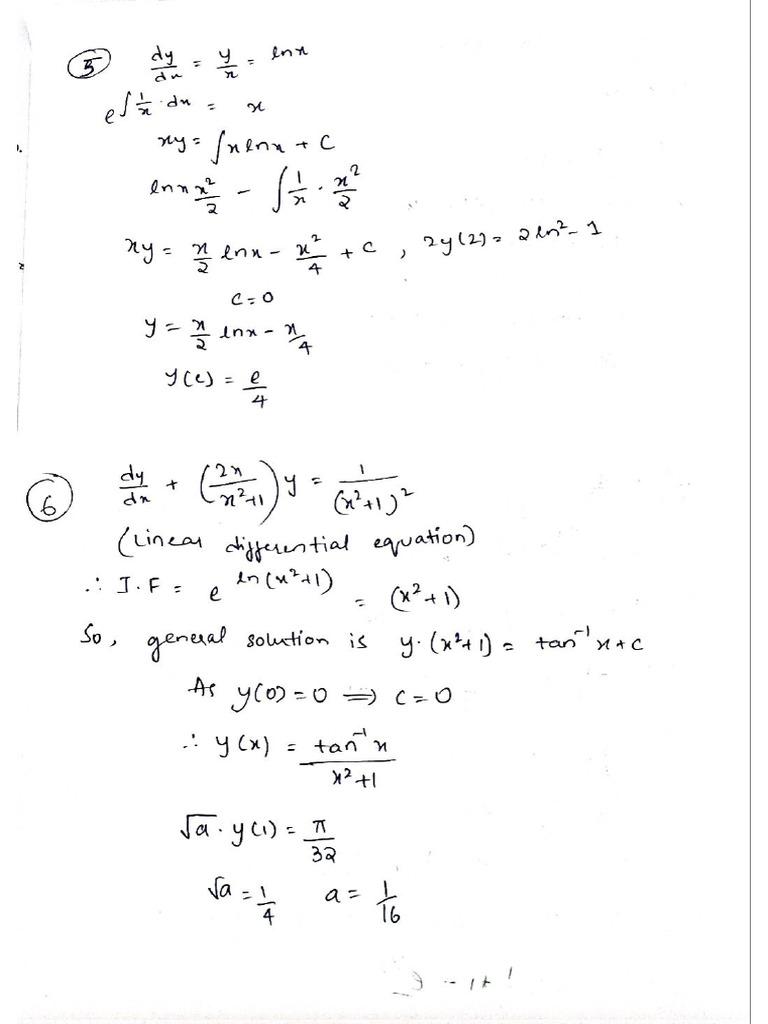 5 dy/dx = y/x = lnx
e^∫1/x·dx = x
xy = ∫xlnx + C
lnx x²/2 - ∫1/x · x²/2
xy = x/2 lnx - x²/4 + c , 2y(2) = 2ln2 - 1
c=0
y = x/2 lnx - x/4
y(e) = e/4
6 dy/dx + (2x/x²+1)y = 1/(x²+1)²
(Linear differential equation)
∴ I.F = e^ln(x²+1) = (x²+1)
So, general solution is y·(x²+1) = tan⁻¹x+c
As y(0)=0 ⟹ c=0
∴ y(x) = tan⁻¹x/x²+1
√a · y(1) = π/32
√a = 1/4 a = 1/16